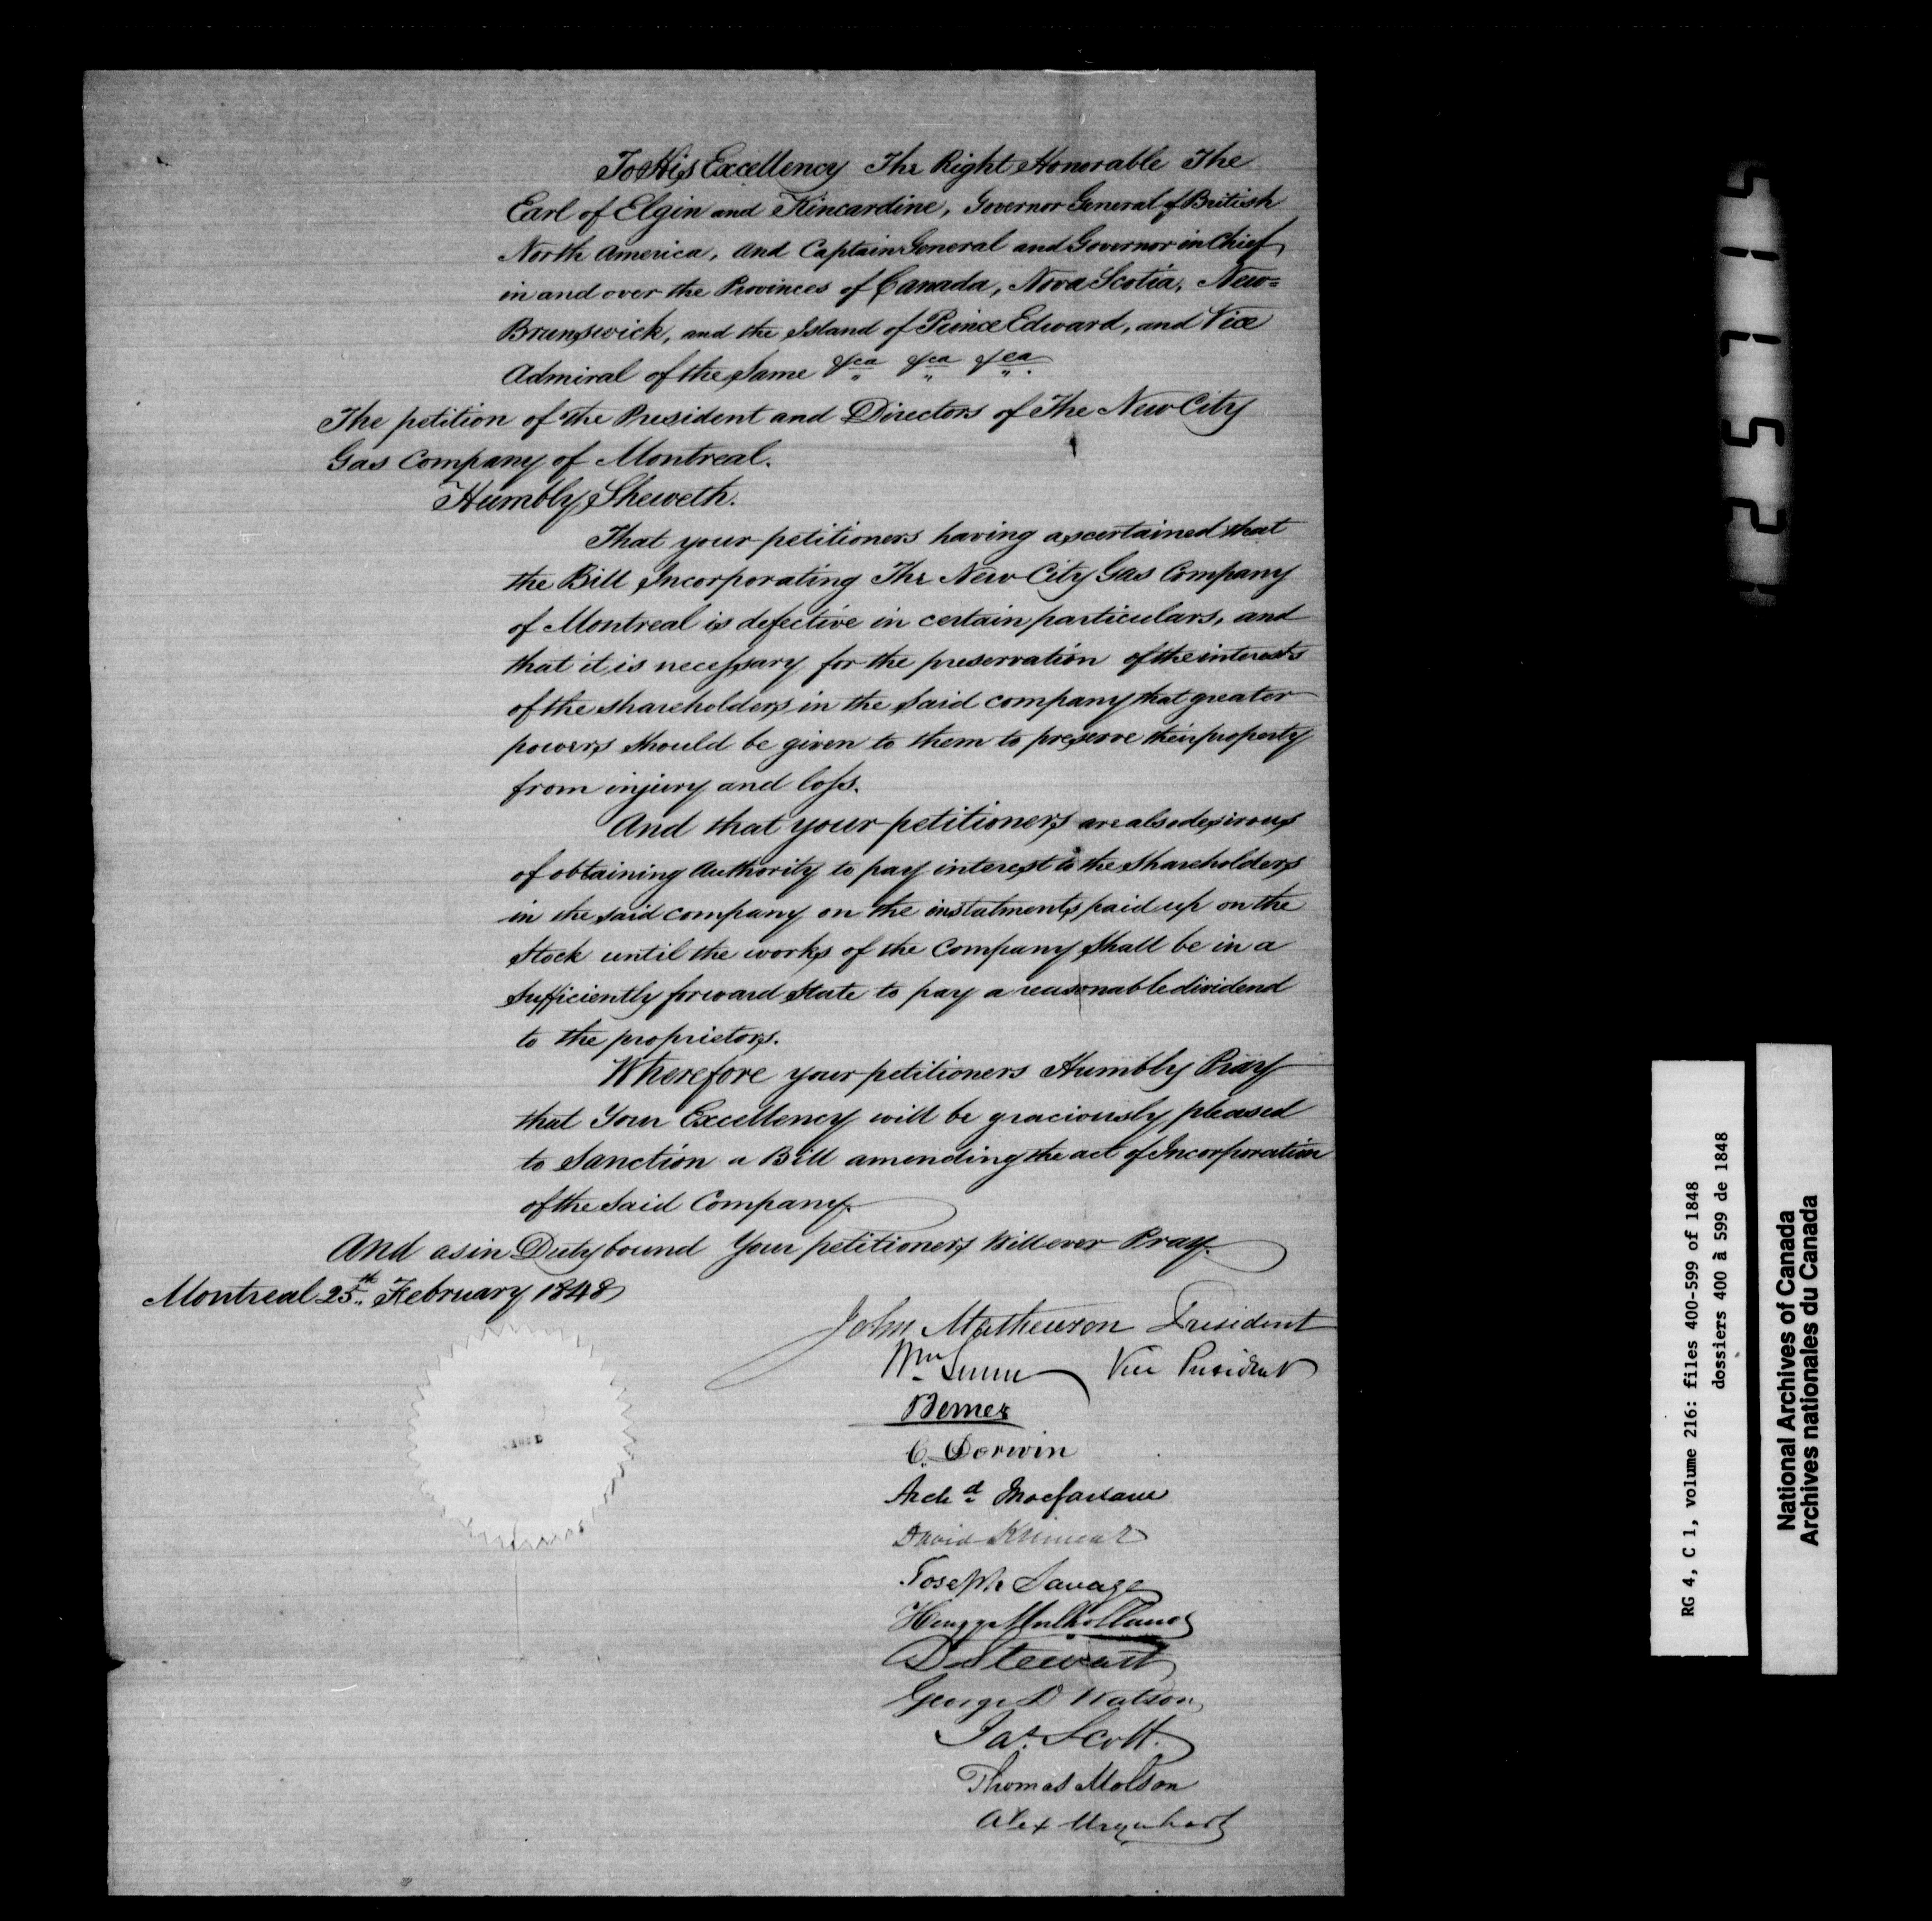 To His Excellency The Right Honorable The
Earl of Elgin and Kincardine, Governor General of British
North America, and Captain General and Governor in Chief
in and over the Provinces of Canada, Nova Scotia, New=
Brunswick, and the Island of Prince Edward, and Vice
Admiral of the Same &ca &ca &ca.
The petition of the President and Directors of The New City
Gas Company of Montreal.
Humbly Sheweth.
That your petitioners having ascertained that
the Bill Incorporating The New City Gas Company
of Montreal is defective in certain particulars, and
that it is necessary for the preservation of the interests
of the shareholders in the said company that greater
powers should be given to them to preserve their property
from injury and loss.
And that your petitioners are also desirous
of obtaining Authority to pay interest to the Shareholders
in the said company on the instalments paid up on the
Stock until the works of the Company Shall be in a
Sufficiently forward State to pay a reasonable dividend
to the proprietors.
Wherefore your petitioners Humbly Pray
that Your Excellency will be graciously pleased
to Sanction a Bill amending the act of Incorporation
of the Said Company.
And as in Duty bound Your petitioners Will ever Pray.
Montreal 25th February 1848
John Mathewson President
Wm Lunn Vice President
C. Dorwin
Archd Macfarlane
David Kinnear
Joseph Savage
Henry Mulholland
D Stewart
George D Watson
Jas. Scott.
Thomas Molson
Alex Urquhart
51152
RG 4, C 1, volume 216: files 400-599 of 1848
dossiers 400 à 599 de 1848
National Archives of Canada
Archives nationales du Canada